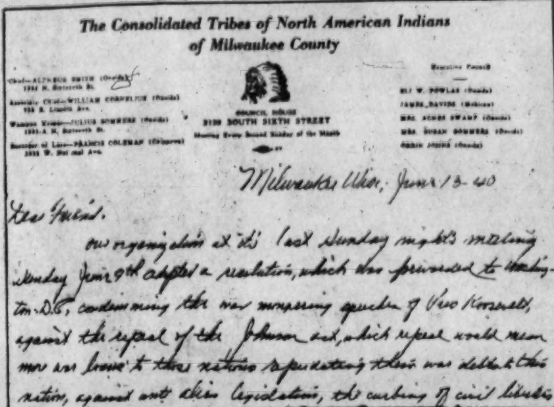 The Consolidated Tribes of North American Indians
of Milwaukee County
Chief—ALPHEUS SMITH (Oneida)
N. Sixteenth St.
WILLIAM CORNELIUS (Oneida)
Ave.
JULIUS SOMMERS (Oneida)
N. Sixteenth St.
FRANCIS COLEMAN (Chippewa)
W. National Ave.
COUNCIL HOUSE
SOUTH SIXTH STREET
Meeting Every Second Sunday of the Month
Executive Council
ELI W. POWLAS (Oneida)
JAMES DAVIDS (Mohican)
MRS. AGNES SWAMP (Oneida)
MRS. SUSAN SOMMERS (Oneida)
JOHNS (Oneida)
Milwaukee Wisc. June 13-40
Dear Friend.
Our organization at it's last Sunday night's meeting
Sunday June 9th adopted a resolution, which was forwarded to Washing-
ton D.C, condemning the war mongering speeches of Pres Roosevelt,
against the repeal of the Johnson act, which repeal would mean
more war loans to those nations repudiating their war debts to this
nation, against anti alien legislation, the curbing of civil liberties